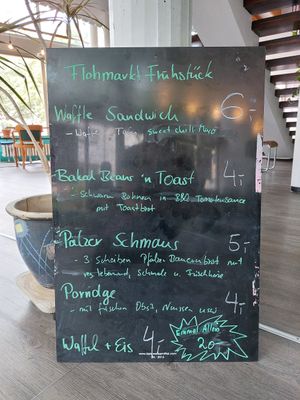 Flohmarkt Frühstück
Waffle Sandwich 6,-
- Waffle, sweet chili Mayo
Baked Beans 'n Toast 4,-
- Schwarze Bohnen in BBQ Tomatensauce
mit Toastbrot
Pälzer Schmaus 5,-
- 3 Scheiben Pfälzer Bauernbrot mit
Schmalz u. Frischkäse
Porridge 4,-
- mit frischem Obst, Nüssen usw.
Waffel + Eis 4,-
Einmal Alles
20,-